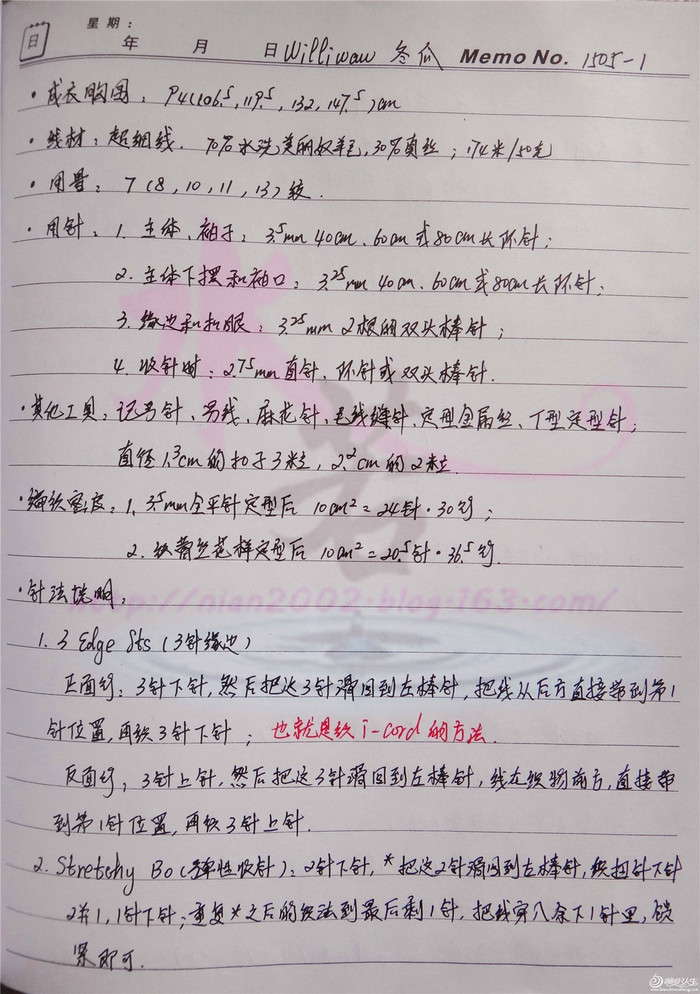 星期:
日 年 月 日 Williwaw 冬瓜 Memo No. 1505-1
·成衣胸围: 94(106.5, 119.5, 132, 147.5)cm
·线材:超细线. 70%水洗美丽奴羊毛,30%真丝;174米/50克
·用量:7(8,10,11,13)绞.
·用针:1.主体、袖子:3.5mm 40cm、60cm或80cm长环针;
2.主体下摆和袖口:3.25mm 40cm、60cm或80cm长环针;
3.缘边和扣眼:3.25mm 2根的双头棒针;
4.收针时:2.75mm直针、环针或双头棒针.
·其他工具:记号针、另线、麻花针、毛线缝针、定型金属丝、T型定型针;
直径1.3cm的扣子3粒,2.2cm的2粒.
·编织密度:1. 3.5mm全平针定型后 10cm²=24针·30行;
2.织蕾丝花样定型后 10cm²=20.5针·36.5行.
·针法说明:
http://nian2002.blog.163.com/
1. 3 Edge Sts(3针缘边)
正面行:3针下针,然后把这3针滑回到左棒针,把线从后方直接带到第1
针位置,再织3针下针;也就是织i-cord的方法.
反面行:3针上针,然后把这3针滑回到左棒针,线在织物前方,直接带
到第1针位置,再织3针上针.
2. Stretchy Bo(弹性收针):2针下针,*把这2针滑回到左棒针,织扭针下针
2并1,1针下针;重复*之后的织法到最后剩1针,把线穿入余下1针里,锁
紧即可.